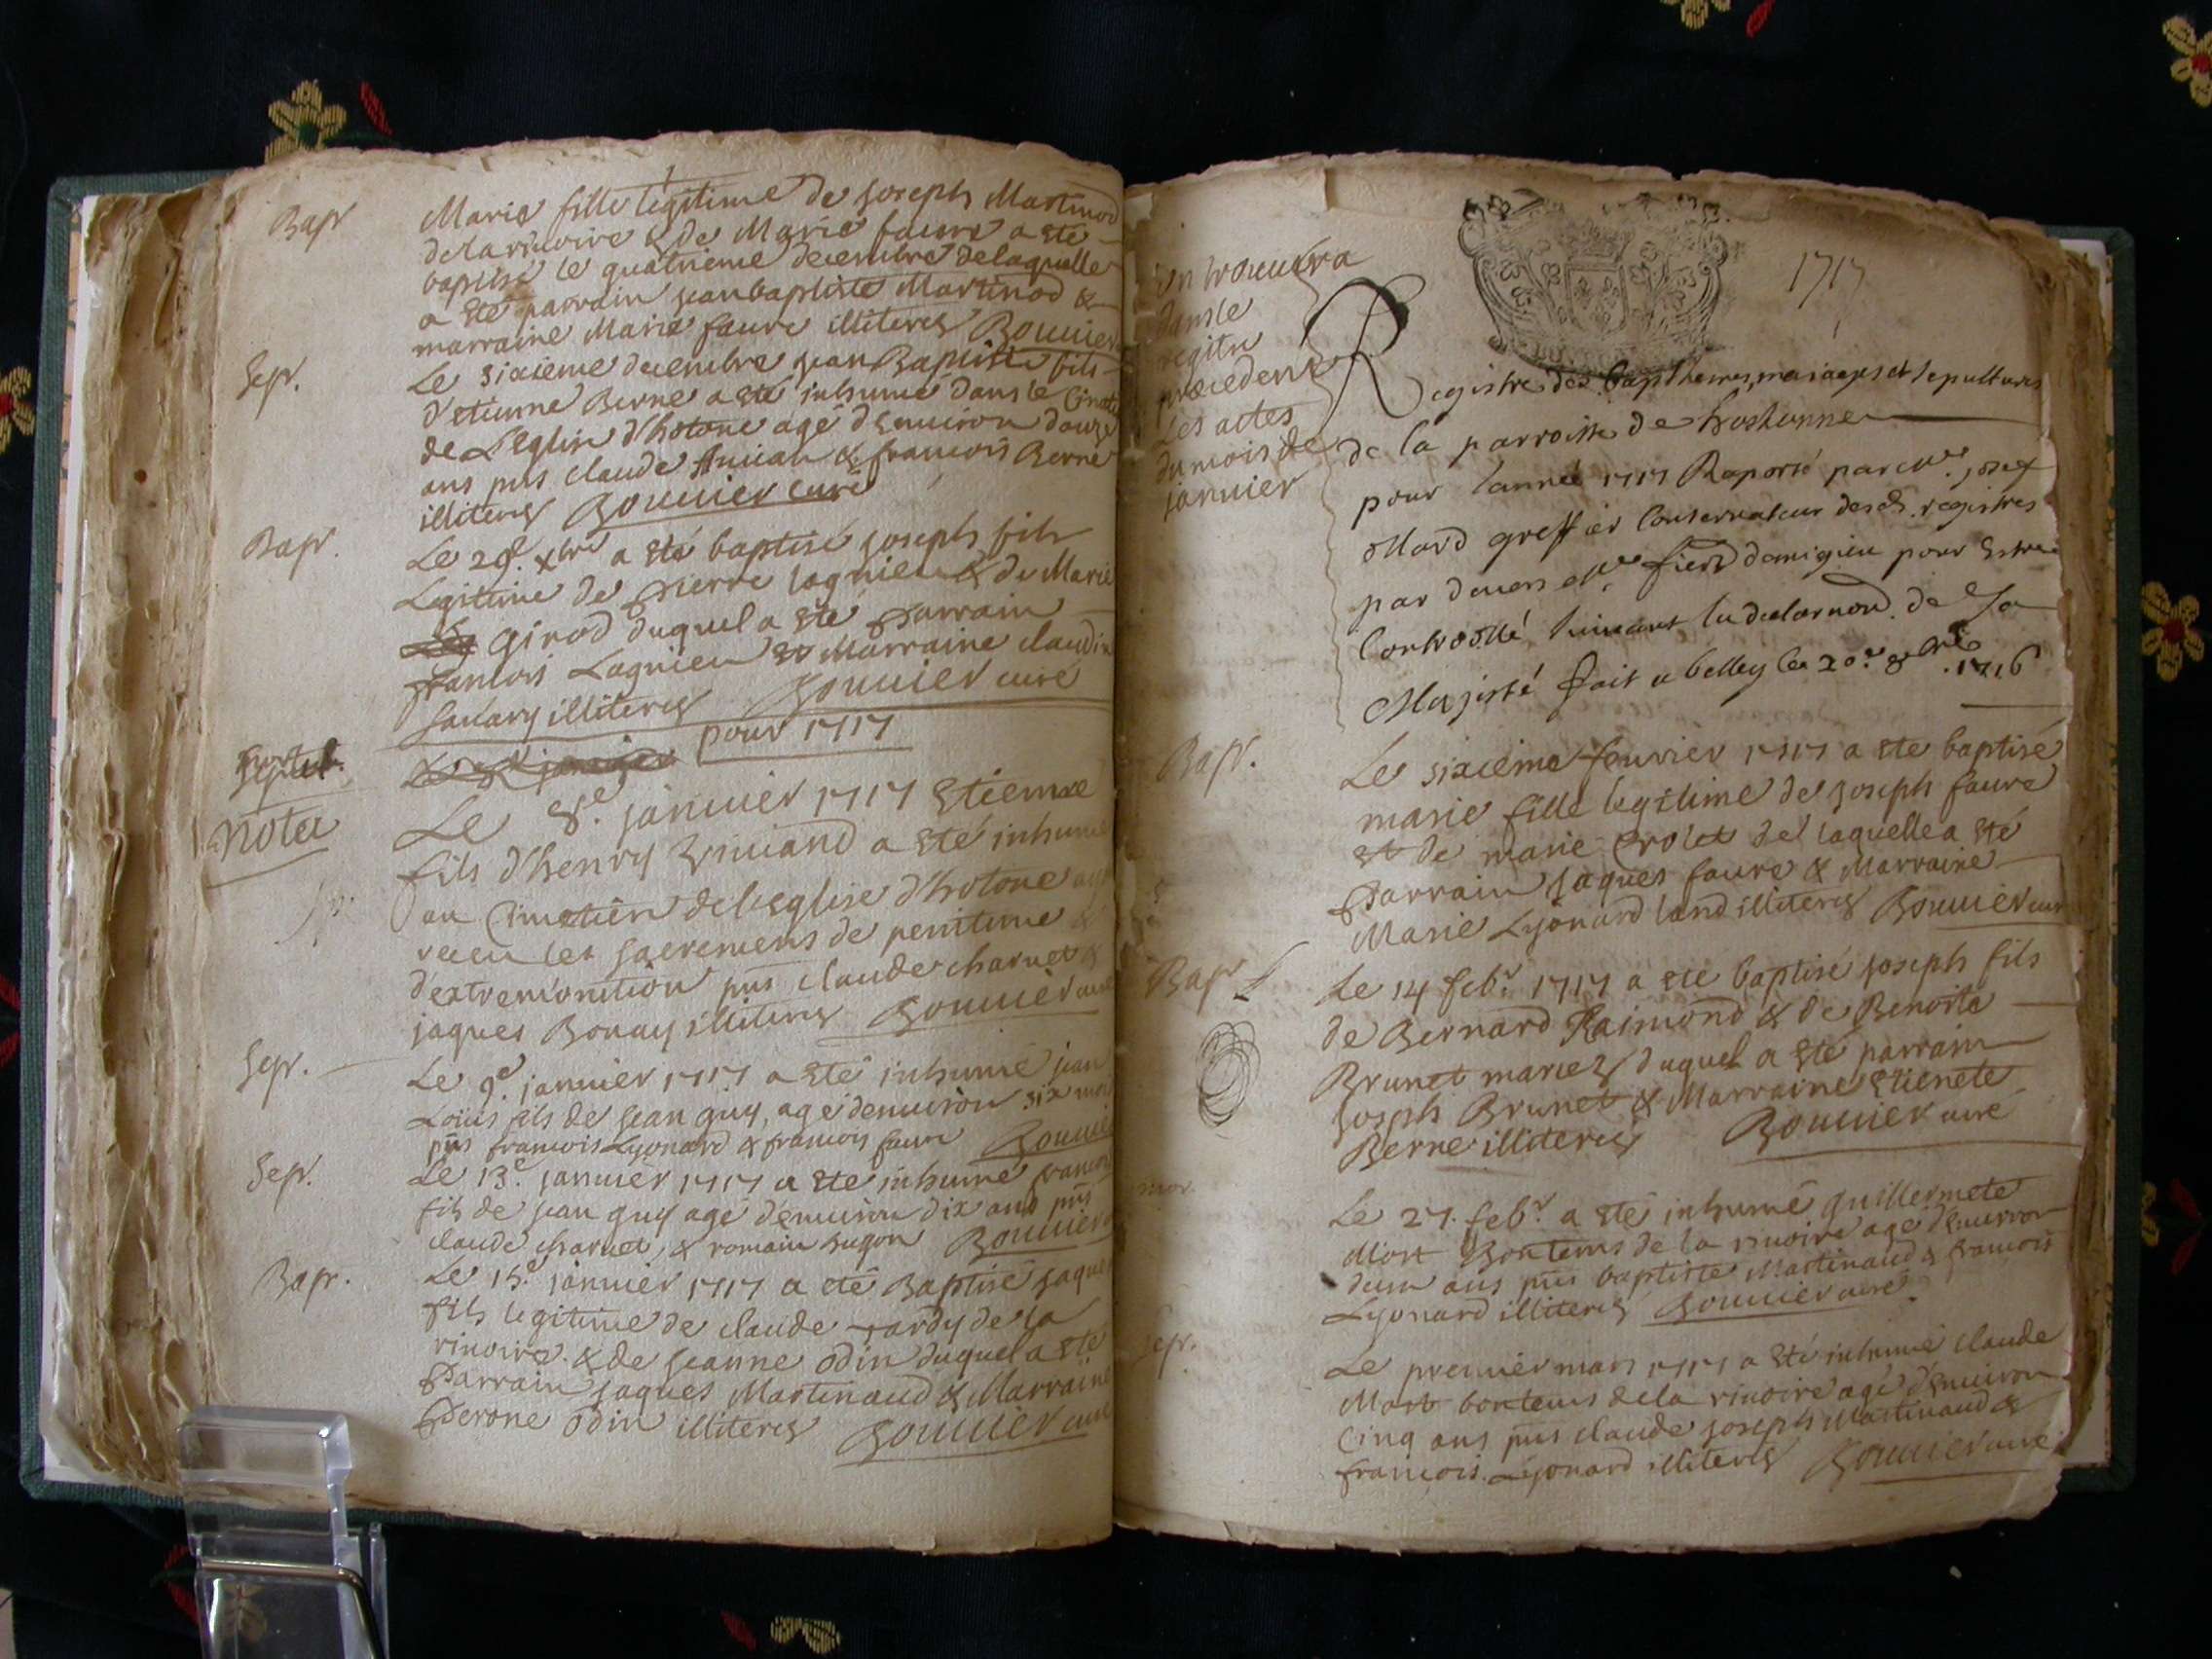 Bapt
Marie fille legitime de joseph Martinod
de la rivoire & de Marie faure a ete
baptisé le quatrieme decembre de laquelle
a ete parrain jean baptiste Martinod &
marraine Marie faure illiteres Bouvier
Sep.
Le sixieme decembre jean Baptiste fils
d'etienne Berne a ete inhumé dans le
de L'Eglise d'hotone agé d'environ douze
ans pns claude & francois Berne
illiteres Bouvier curé
Bapt.
Le 29e. xbre a eté baptisé joseph fils
Legitime de pierre Lagnieu & de Marie
Girod duquel a ete parrain
francois Lagnieu et Marraine claudine
savary illiteres Bouvier curé
pour 1717
Nota
Le 8e. janvier 1717 Etienne
fils d'henry a eté inhumé
au Cimetiere de l'eglise d'hotone
receu les sacremens de penitence &
d'extremonction pns claude charvet &
jaques Bonay illiteres Bouvier curé
Sep.
Le 9e. janvier 1717 a eté inhumé jean
Louis fils de jean guy, agé denviron six mois
pns francois Lyonard & francois faure Bouvier
Sep.
Le 13e. janvier 1717 a eté inhumé francois
fils de jean guy agé denviron dix ans pns
claude charvet, & romain hugon Bouvier
Bapt.
Le 15e. janvier 1717 a eté Baptisé jaques
fils legitime de claude tardy de la
rivoire. & de jeanne odin duquel a eté
Parrain jaques Martinaud & Marraine
Perone odin illiteres Bouvier curé
on trouvera
dans le
regitre
precedent
Les actes
du mois de
janvier
1717
Registre des bapthemes, mariages et sepultures
de la parroisse de
pour lannée 1717 Raporté par Me. josef
Mard greffier Conservateur desd. registres
par devers Me. fierd damigieu pour Estre
Controollé suivant la declaraon. de Sa
Majesté fait a belley le 20e. 8bre. 1716
Bapt.
Le sixieme fevrier 1717 a ete baptisé
marie fille legitime de joseph faure
et de marie Crolet de laquelle a eté
Parrain jaques faure & Marraine
Marie Lyonard land illiteres Bouvier curé
Bapt
Le 14 febr. 1717 a ete baptisé joseph fils
de Bernard Raimond & de Benoite
Brunet mariez duquel a eté parrain
joseph Brunet & Marraine Etienete
Berne illiteres Bouvier curé
mor.
Le 27. febr. a eté inhumé guillermete
Mort Bontems de la rivoire agé d'environ
deux ans pns baptiste Martinaud & francois
Lyonard illiteres Bouvier curé.
Sep.
Le premier mars 1717 a eté inhumé claude
Mort bontems de la rivoire agé d'environ
Cinq ans pns claude joseph Martinaud &
francois. Lyonard illiteres Bouvier curé